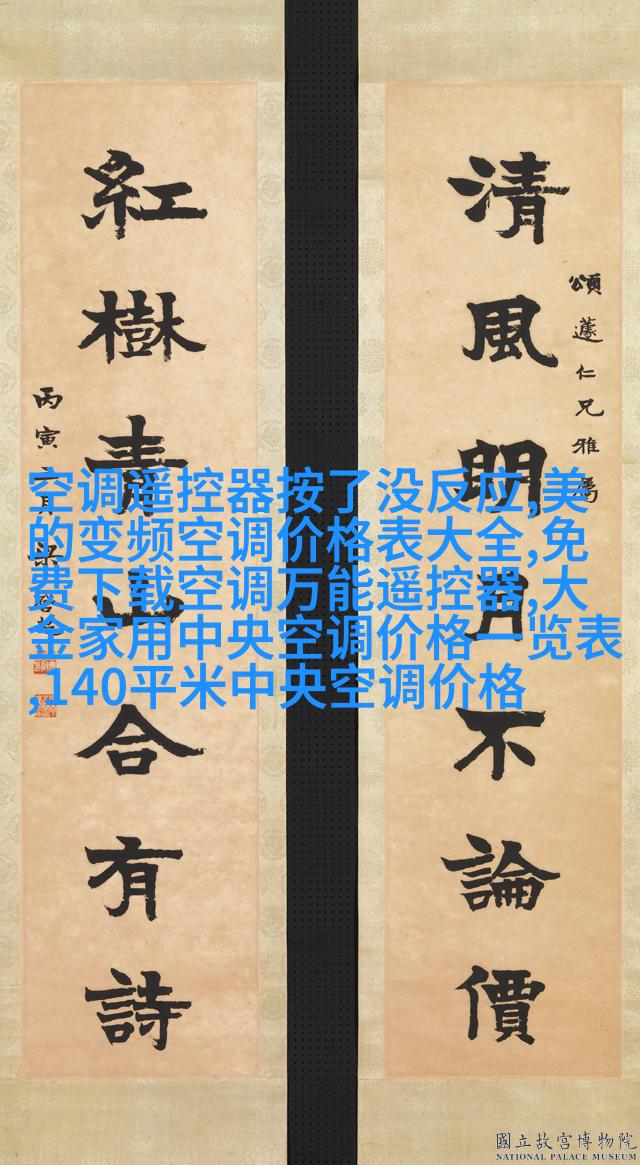 清風明月不論價
頌蘧仁兄雅屬
紅樹青山合有詩
丙寅
空调遥控器按了没反应,美
的变频空调价格表大全,免
费下载空调万能遥控器,大
金家用中央空调价格一览表
,140平米中央空调价格
國立故宮博物院
NATIONAL PALACE MUSEUM